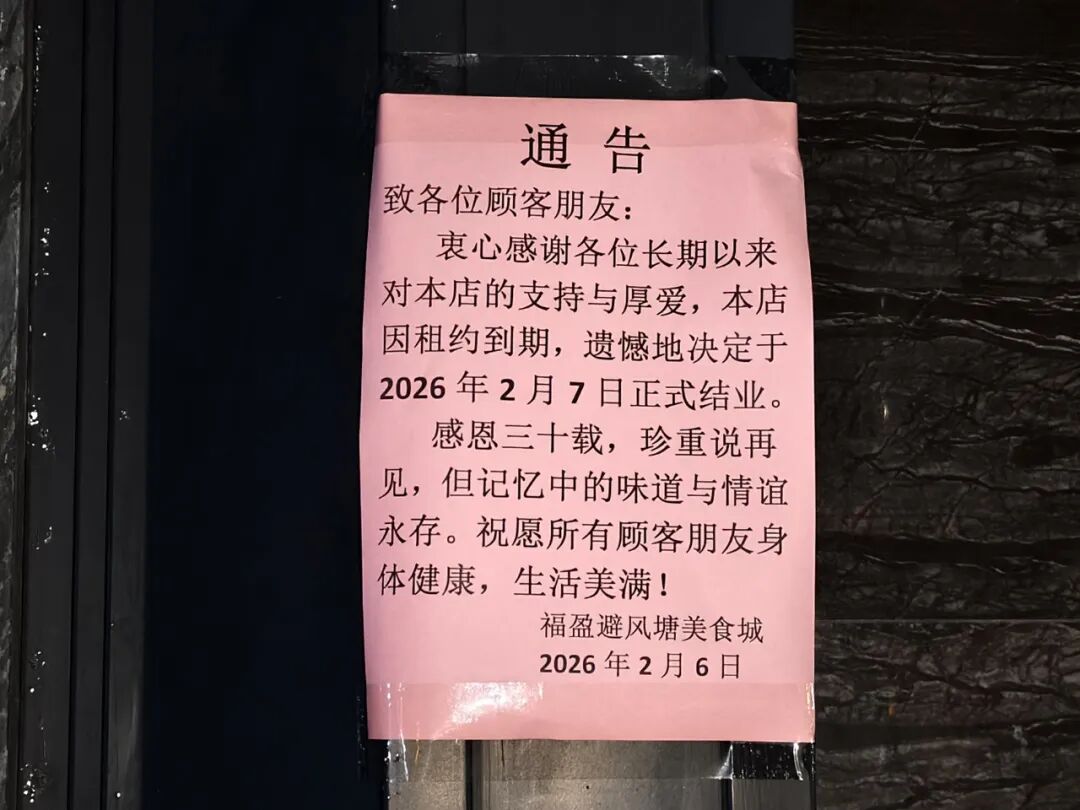 通 告
致各位顾客朋友：
衷心感谢各位长期以来
对本店的支持与厚爱，本店
因租约到期，遗憾地决定于
2026 年 2 月 7 日正式结业。
感恩三十载，珍重说再
见，但记忆中的味道与情谊
永存。祝愿所有顾客朋友身
体健康，生活美满！
福盈避风塘美食城
2026 年 2 月 6 日